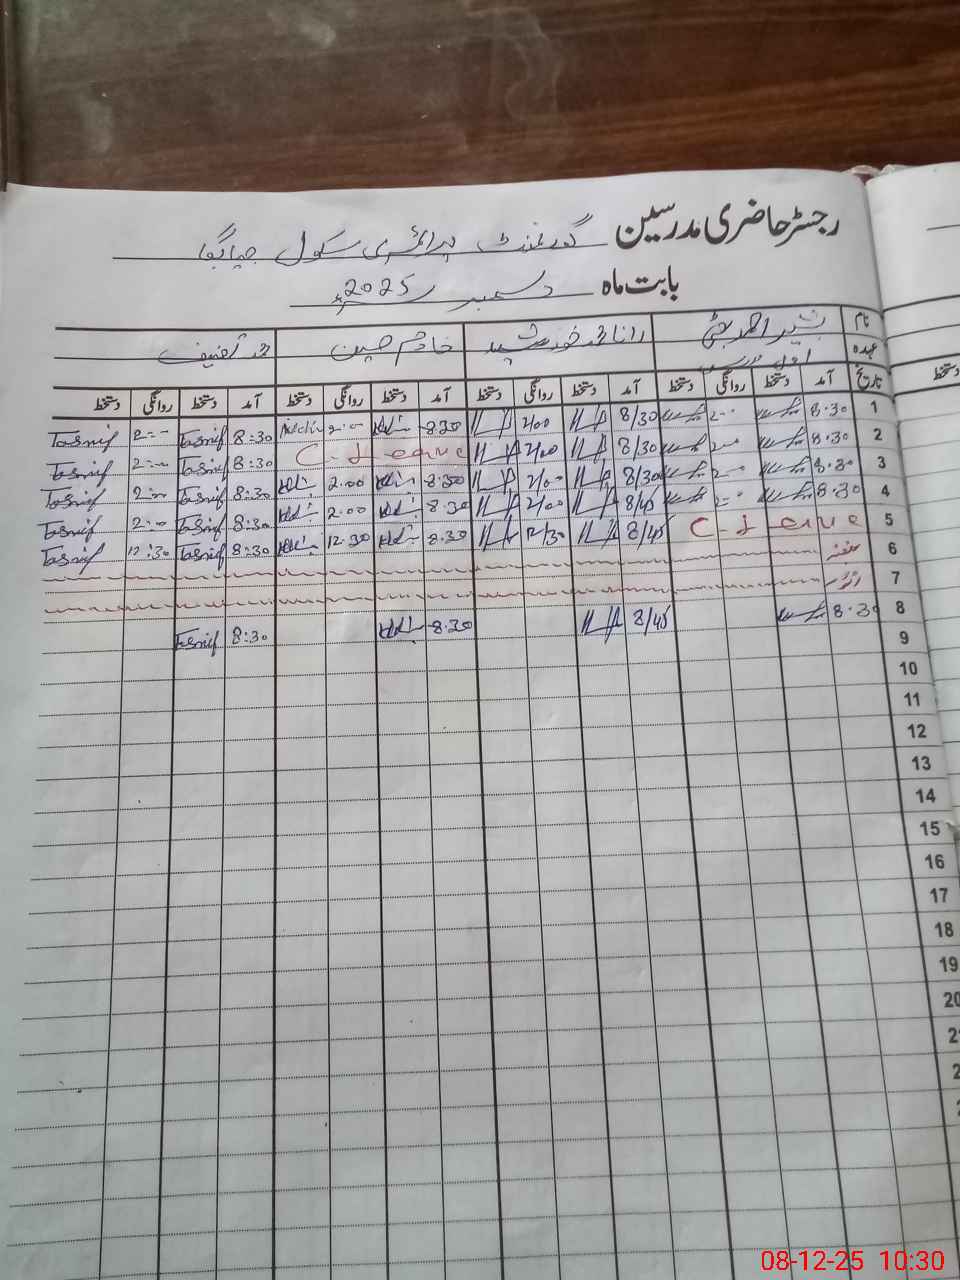 رجسٹر حاضری مدرسین گورنمنٹ پرائمری سکول
بابت ماہ دسمبر 2025ء
نام بشیر احمد بھٹی رانا محمد خورشید خادم حسین محمد تصنیف
عہدہ
تاریخ آمد دستخط روانگی دستخط آمد دستخط روانگی دستخط آمد دستخط روانگی دستخط آمد دستخط روانگی دستخط
دستخط
1 8.30 2:00 8/30 2/00 8.30 2:00 8:30 Tasnif 2:00 Tasnif
2 8.30 2:00 8/30 2/00 C-Leave 8:30 Tasnif 2:00 Tasnif
3 8.30 2:00 8/30 2/00 8.30 2.00 8:30 Tasnif 2:00 Tasnif
4 8.30 2:00 8/45 2/00 8.30 2.00 8:30 Tasnif 2:00 Tasnif
5 C-Leave 8/45 12/30 8.30 12.30 8:30 Tasnif 12:30 Tasnif
6 ہفتہ
7 اتوار
8 8.30 8/45 8.30 8:30 Tasnif
9
10
11
12
13
14
15
16
17
18
19
20
08-12-25 10:30